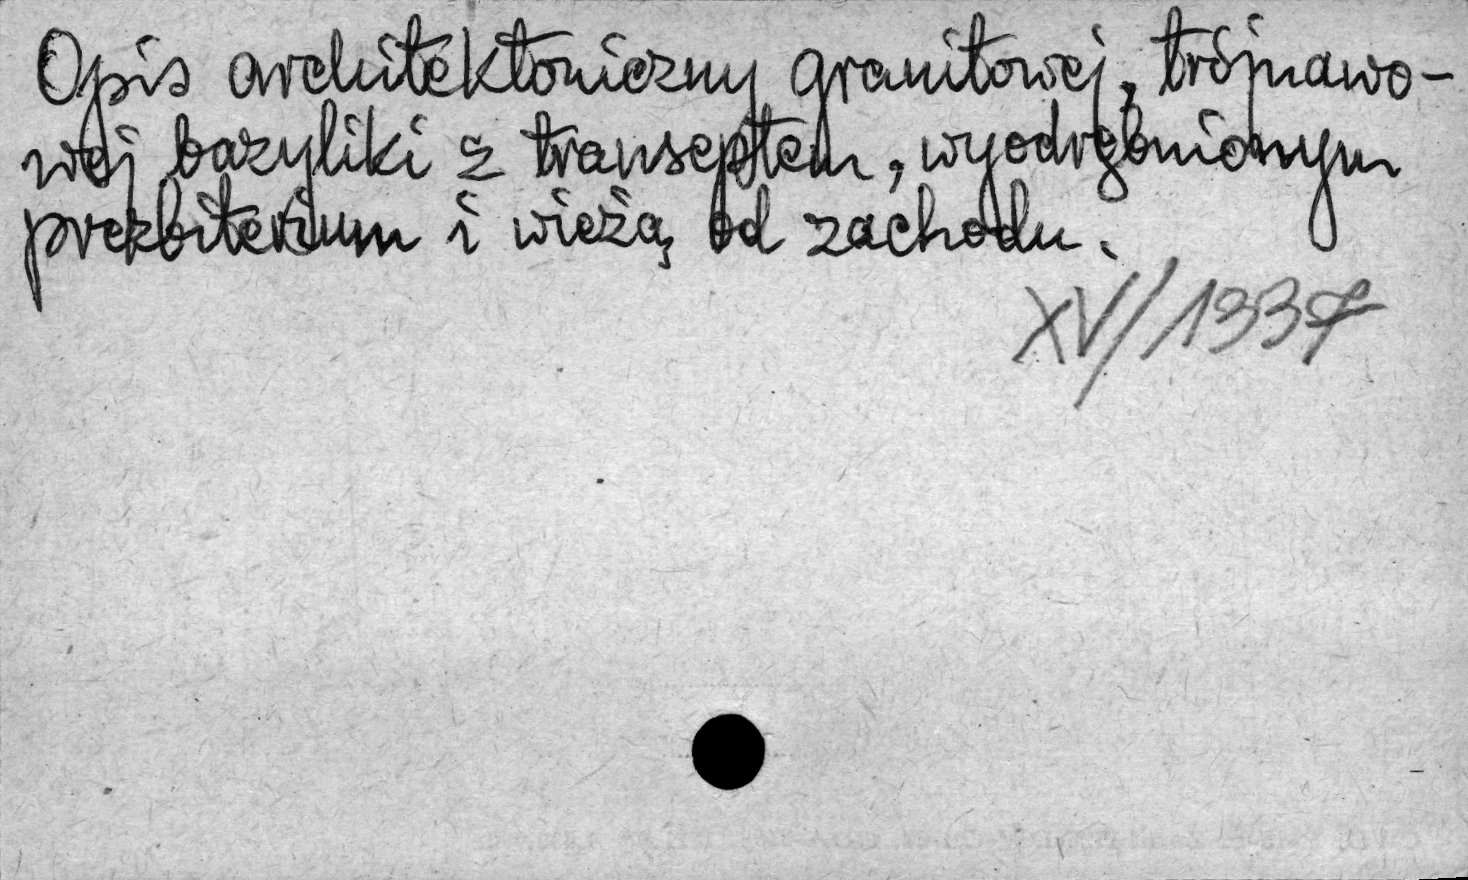 Opis architektoniczny granitowej, trójnawo-
wej bazyliki z transeptem, wyodrębnionym
prezbiterium i wieżą od zachodu.
XV/1337